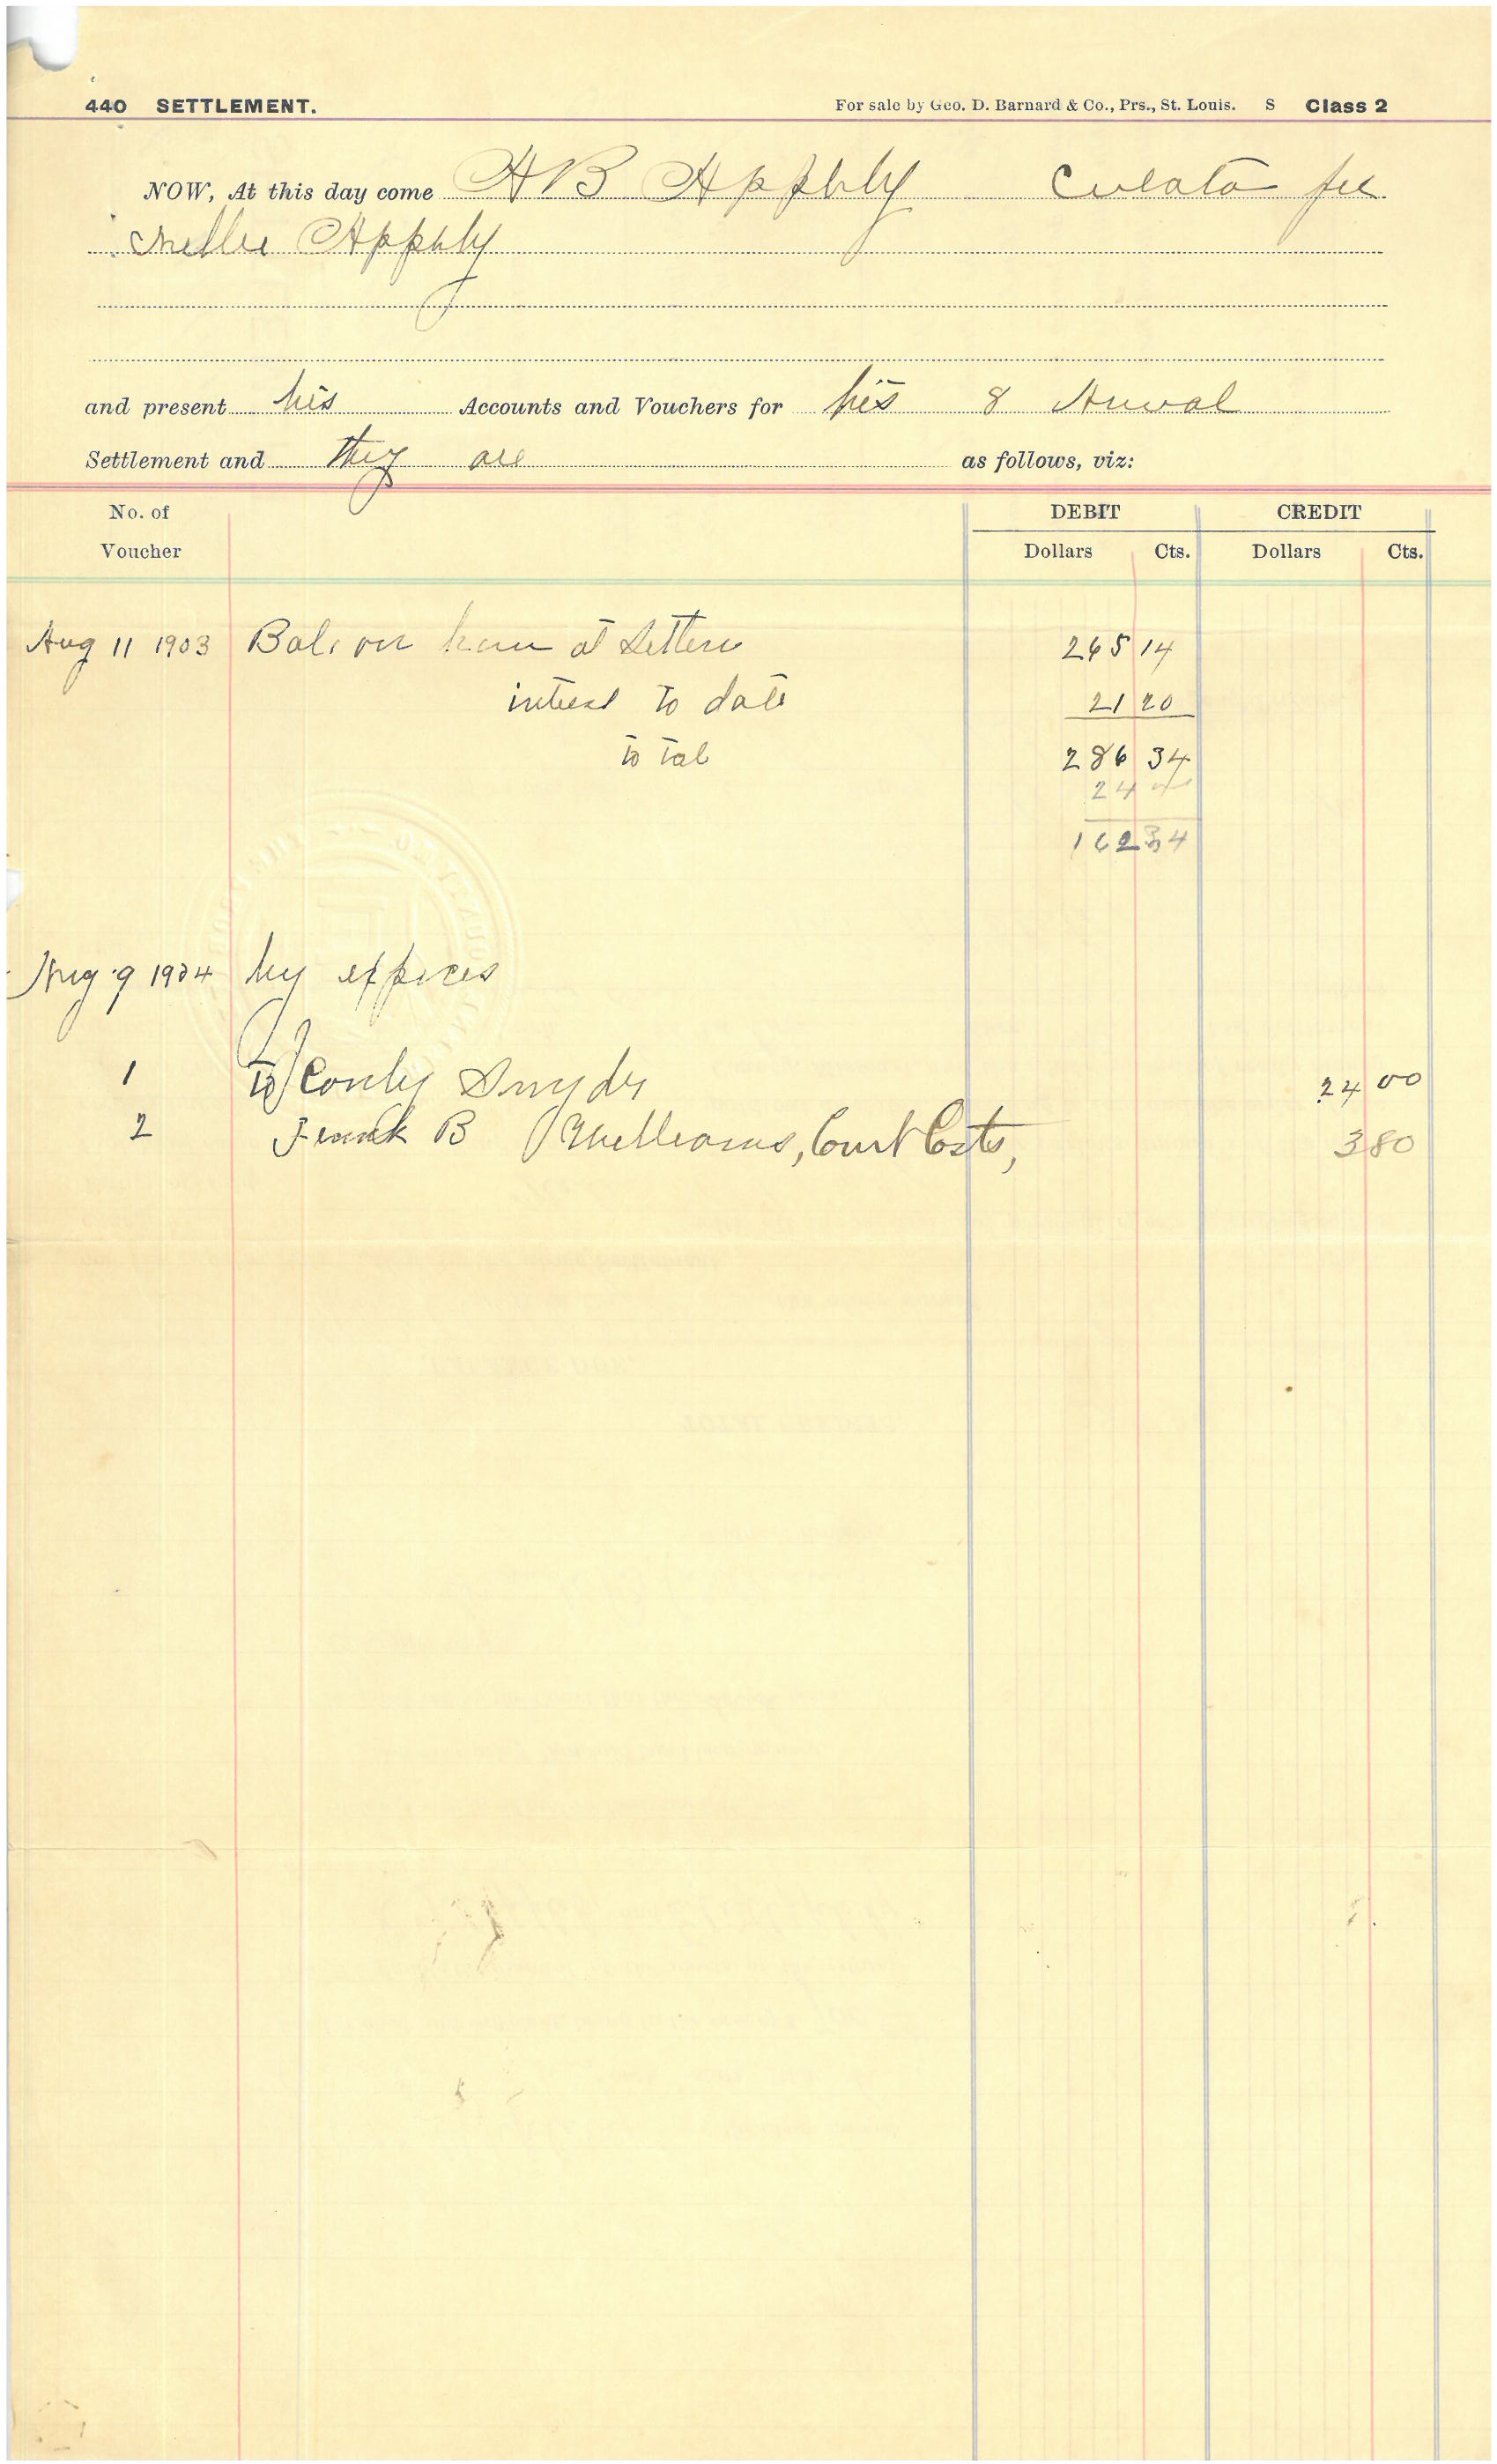 440 SETTLEMENT. For sale by Geo. D. Barnard & Co., Prs., St. Louis. S Class 2
NOW, At this day come H B Appbly Curator for
Nellie Appbly
and present his Accounts and Vouchers for his 8 Anual
Settlement and they are as follows, viz:
No. of Voucher DEBIT CREDIT
Dollars Cts. Dollars Cts.
Aug 11 1903 Bal. on at 265 14
interest to date 21 20
total 286 34
24
162 34
Aug 9 1904 by
1 to Conly Snyder 24 00
2 Frank B Williams, Court Costs, 3 80